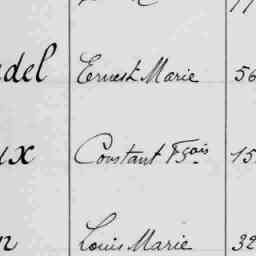 del Ernest Marie 56
ux Constant Fçois 15
n Louis Marie 32